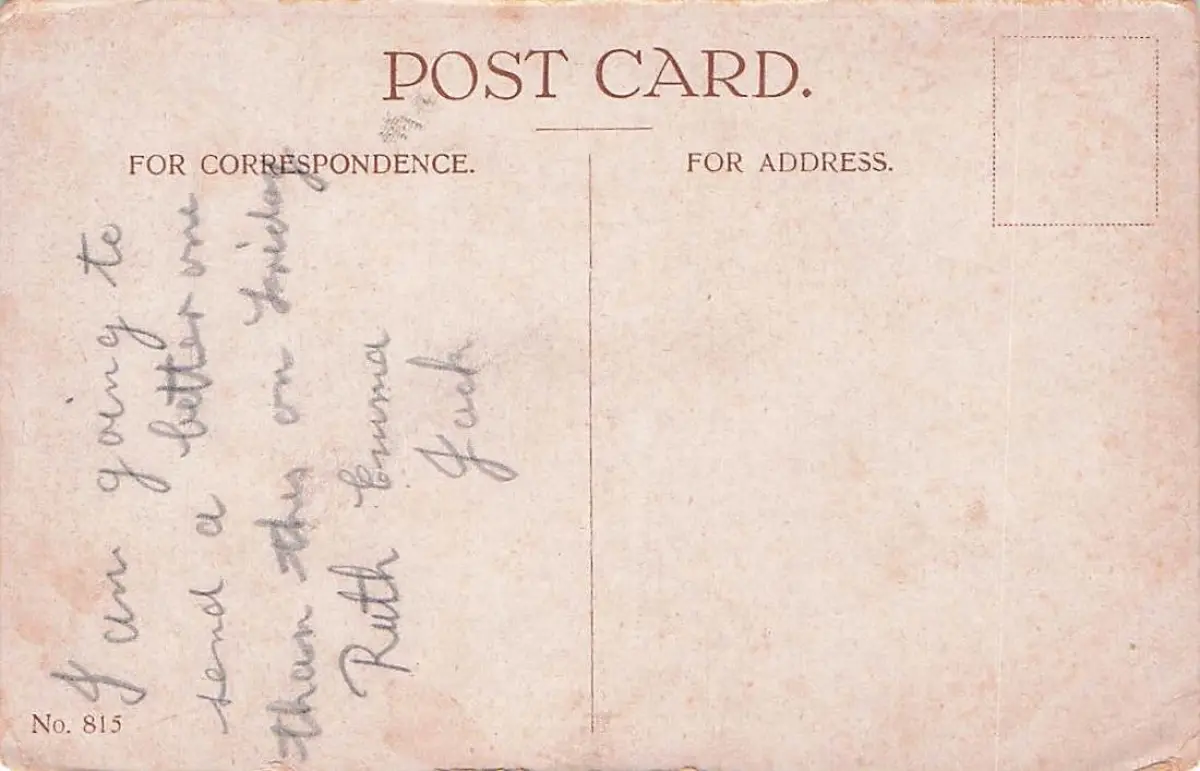 POST CARD.
FOR CORRESPONDENCE.
FOR ADDRESS.
I am going to
send a better one
than this on Friday
Ruth Emma
Jack
No. 815